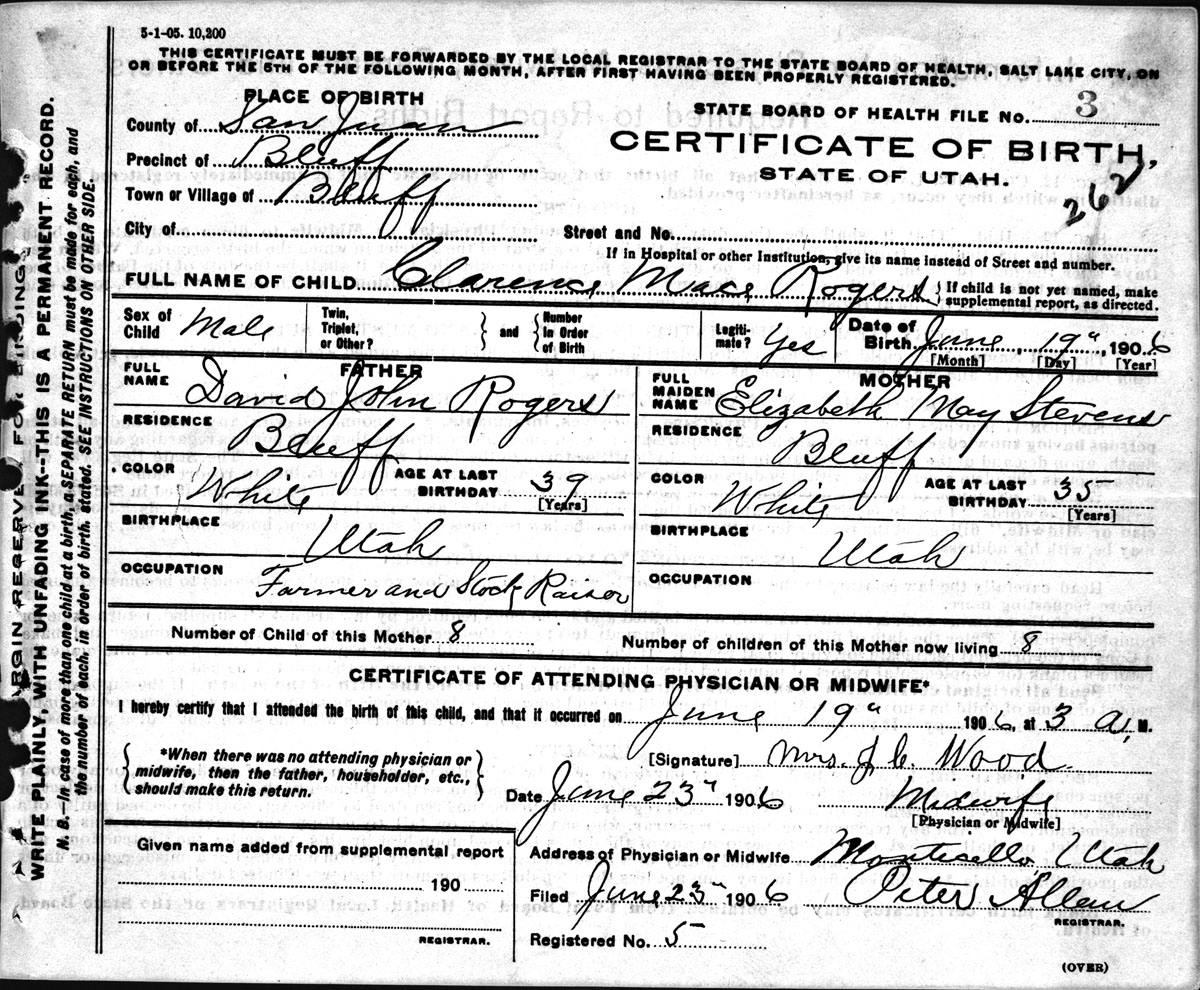 5-1-05. 10,200
THIS CERTIFICATE MUST BE FORWARDED BY THE LOCAL REGISTRAR TO THE STATE BOARD OF HEALTH, SALT LAKE CITY, ON
OR BEFORE THE 5TH OF THE FOLLOWING MONTH, AFTER FIRST HAVING BEEN PROPERLY REGISTERED.
PLACE OF BIRTH
STATE BOARD OF HEALTH FILE NO. 3
County of San Juan
CERTIFICATE OF BIRTH,
Precinct of Bluff
STATE OF UTAH.
Town or Village of Bluff
262
City of
Street and No.
If in Hospital or other Institution, give its name instead of Street and number.
FULL NAME OF CHILD Clarence Mace Rogers { If child is not yet named, make
supplemental report, as directed.
Sex of Child Male
Twin, Triplet, or Other? } and { Number in Order of Birth
Legiti- mate? Yes
Date of Birth June, 19", 1906
[Month] [Day] [Year]
FATHER
FULL NAME David John Rogers
RESIDENCE Bluff
COLOR White AGE AT LAST BIRTHDAY 39 [Years]
BIRTHPLACE Utah
OCCUPATION Farmer and Stock Raiser
MOTHER
FULL MAIDEN NAME Elizabeth May Stevens
RESIDENCE Bluff
COLOR White AGE AT LAST BIRTHDAY 35 [Years]
BIRTHPLACE Utah
OCCUPATION
Number of Child of this Mother 8 Number of children of this Mother now living 8
CERTIFICATE OF ATTENDING PHYSICIAN OR MIDWIFE*
I hereby certify that I attended the birth of this child, and that it occurred on June 19" 1906, at 3 a, M.
{ *When there was no attending physician or
midwife, then the father, householder, etc.,
should make this return. }
[Signature] Mrs. J. C. Wood.
Date June 23" 1906 Midwife
[Physician or Midwife]
Given name added from supplemental report
190
REGISTRAR.
Address of Physician or Midwife Monticello Utah
Filed June 23" 1906 Peter Allan
REGISTRAR.
Registered No. 5
(OVER)
MARGIN RESERVED FOR BINDING
WRITE PLAINLY, WITH UNFADING INK--THIS IS A PERMANENT RECORD.
N. B.—In case of more than one child at a birth, a SEPARATE RETURN must be made for each, and
the number of each, in order of birth, stated. SEE INSTRUCTIONS ON OTHER SIDE.